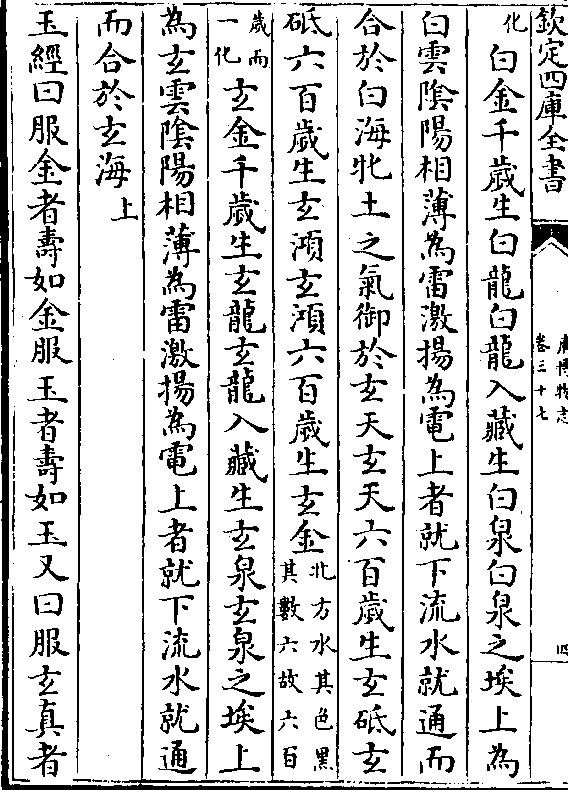 欽定四庫全書
廣博物志
卷三十七
四
化 白金千歲生白龍白龍入藏生白泉白泉之埃上為
白雲隂陽相薄為雷激揚為電上者就下流水就通而
合於白海牝土之氣御於玄天玄天六百歲生玄砥玄
砥六百歲生玄澒玄澒六百歲生玄金北方水其色黑其數六故六百
歲而一化 玄金千歲生玄龍玄龍入藏生玄泉玄泉之埃上
為玄雲隂陽相薄為雷激揚為電上者就下流水就通
而合於玄海上
玉經曰服金者壽如金服玉者壽如玉又曰服玄真者